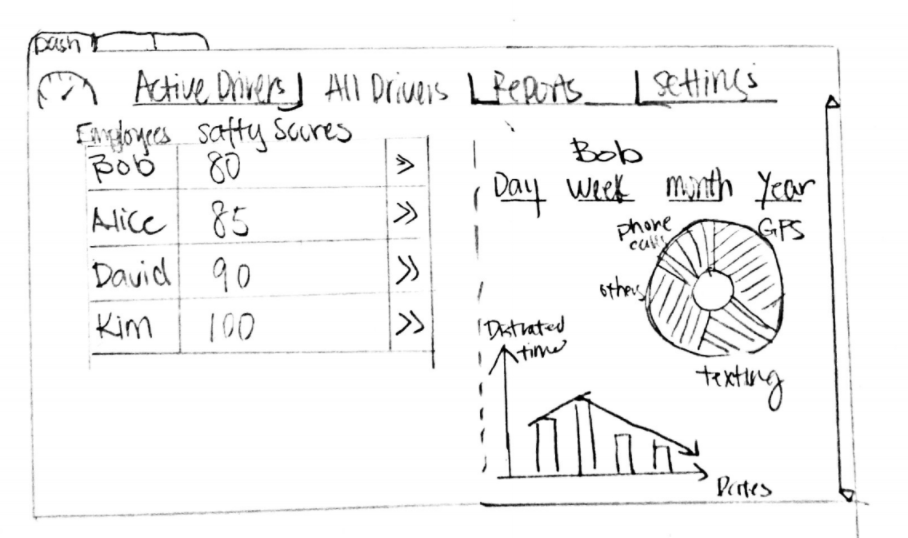 Dash
Active Drivers All Drivers Reports Settings
Employees Safty Scores
Bob 80 >>
Alice 85 >>
David 90 >>
Kim 100 >>
Bob
Day Week month Year
phone calls
GPS
others
texting
Distrated
time
Dates